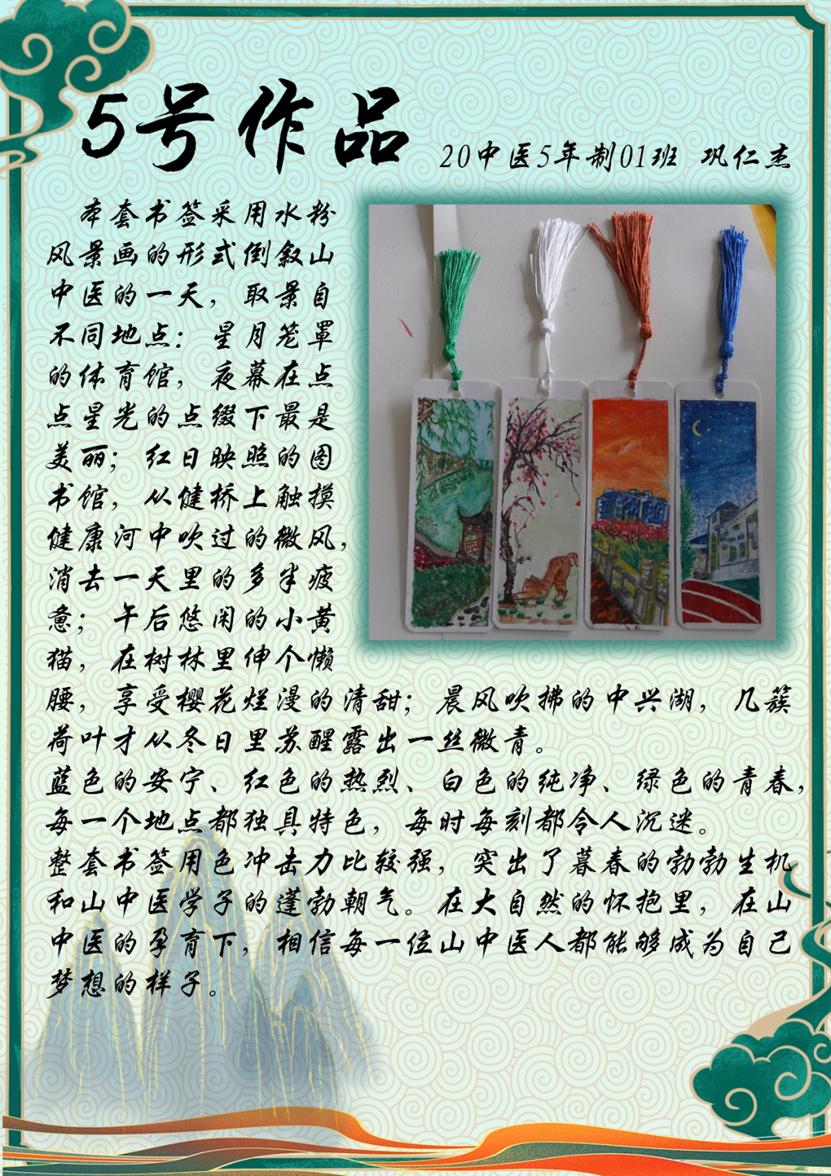 5号作品
20中医5年制01班 巩仁杰
本套书签采用水粉
风景画的形式倒叙山
中医的一天，取景自
不同地点：星月笼罩
的体育馆，夜幕在点
点星光的点缀下最是
美丽；红日映照的图
书馆，从健桥上触摸
健康河中吹过的微风，
消去一天里的多半疲
惫；午后悠闲的小黄
猫，在树林里伸个懒
腰，享受樱花烂漫的清甜；晨风吹拂的中兴湖，几簇
荷叶才从冬日里苏醒露出一丝微青。
蓝色的安宁、红色的热烈、白色的纯净、绿色的青春，
每一个地点都独具特色，每时每刻都令人沉迷。
整套书签用色冲击力比较强，突出了暮春的勃勃生机
和山中医学子的蓬勃朝气。在大自然的怀抱里，在山
中医的孕育下，相信每一位山中医人都能够成为自己
梦想的样子。